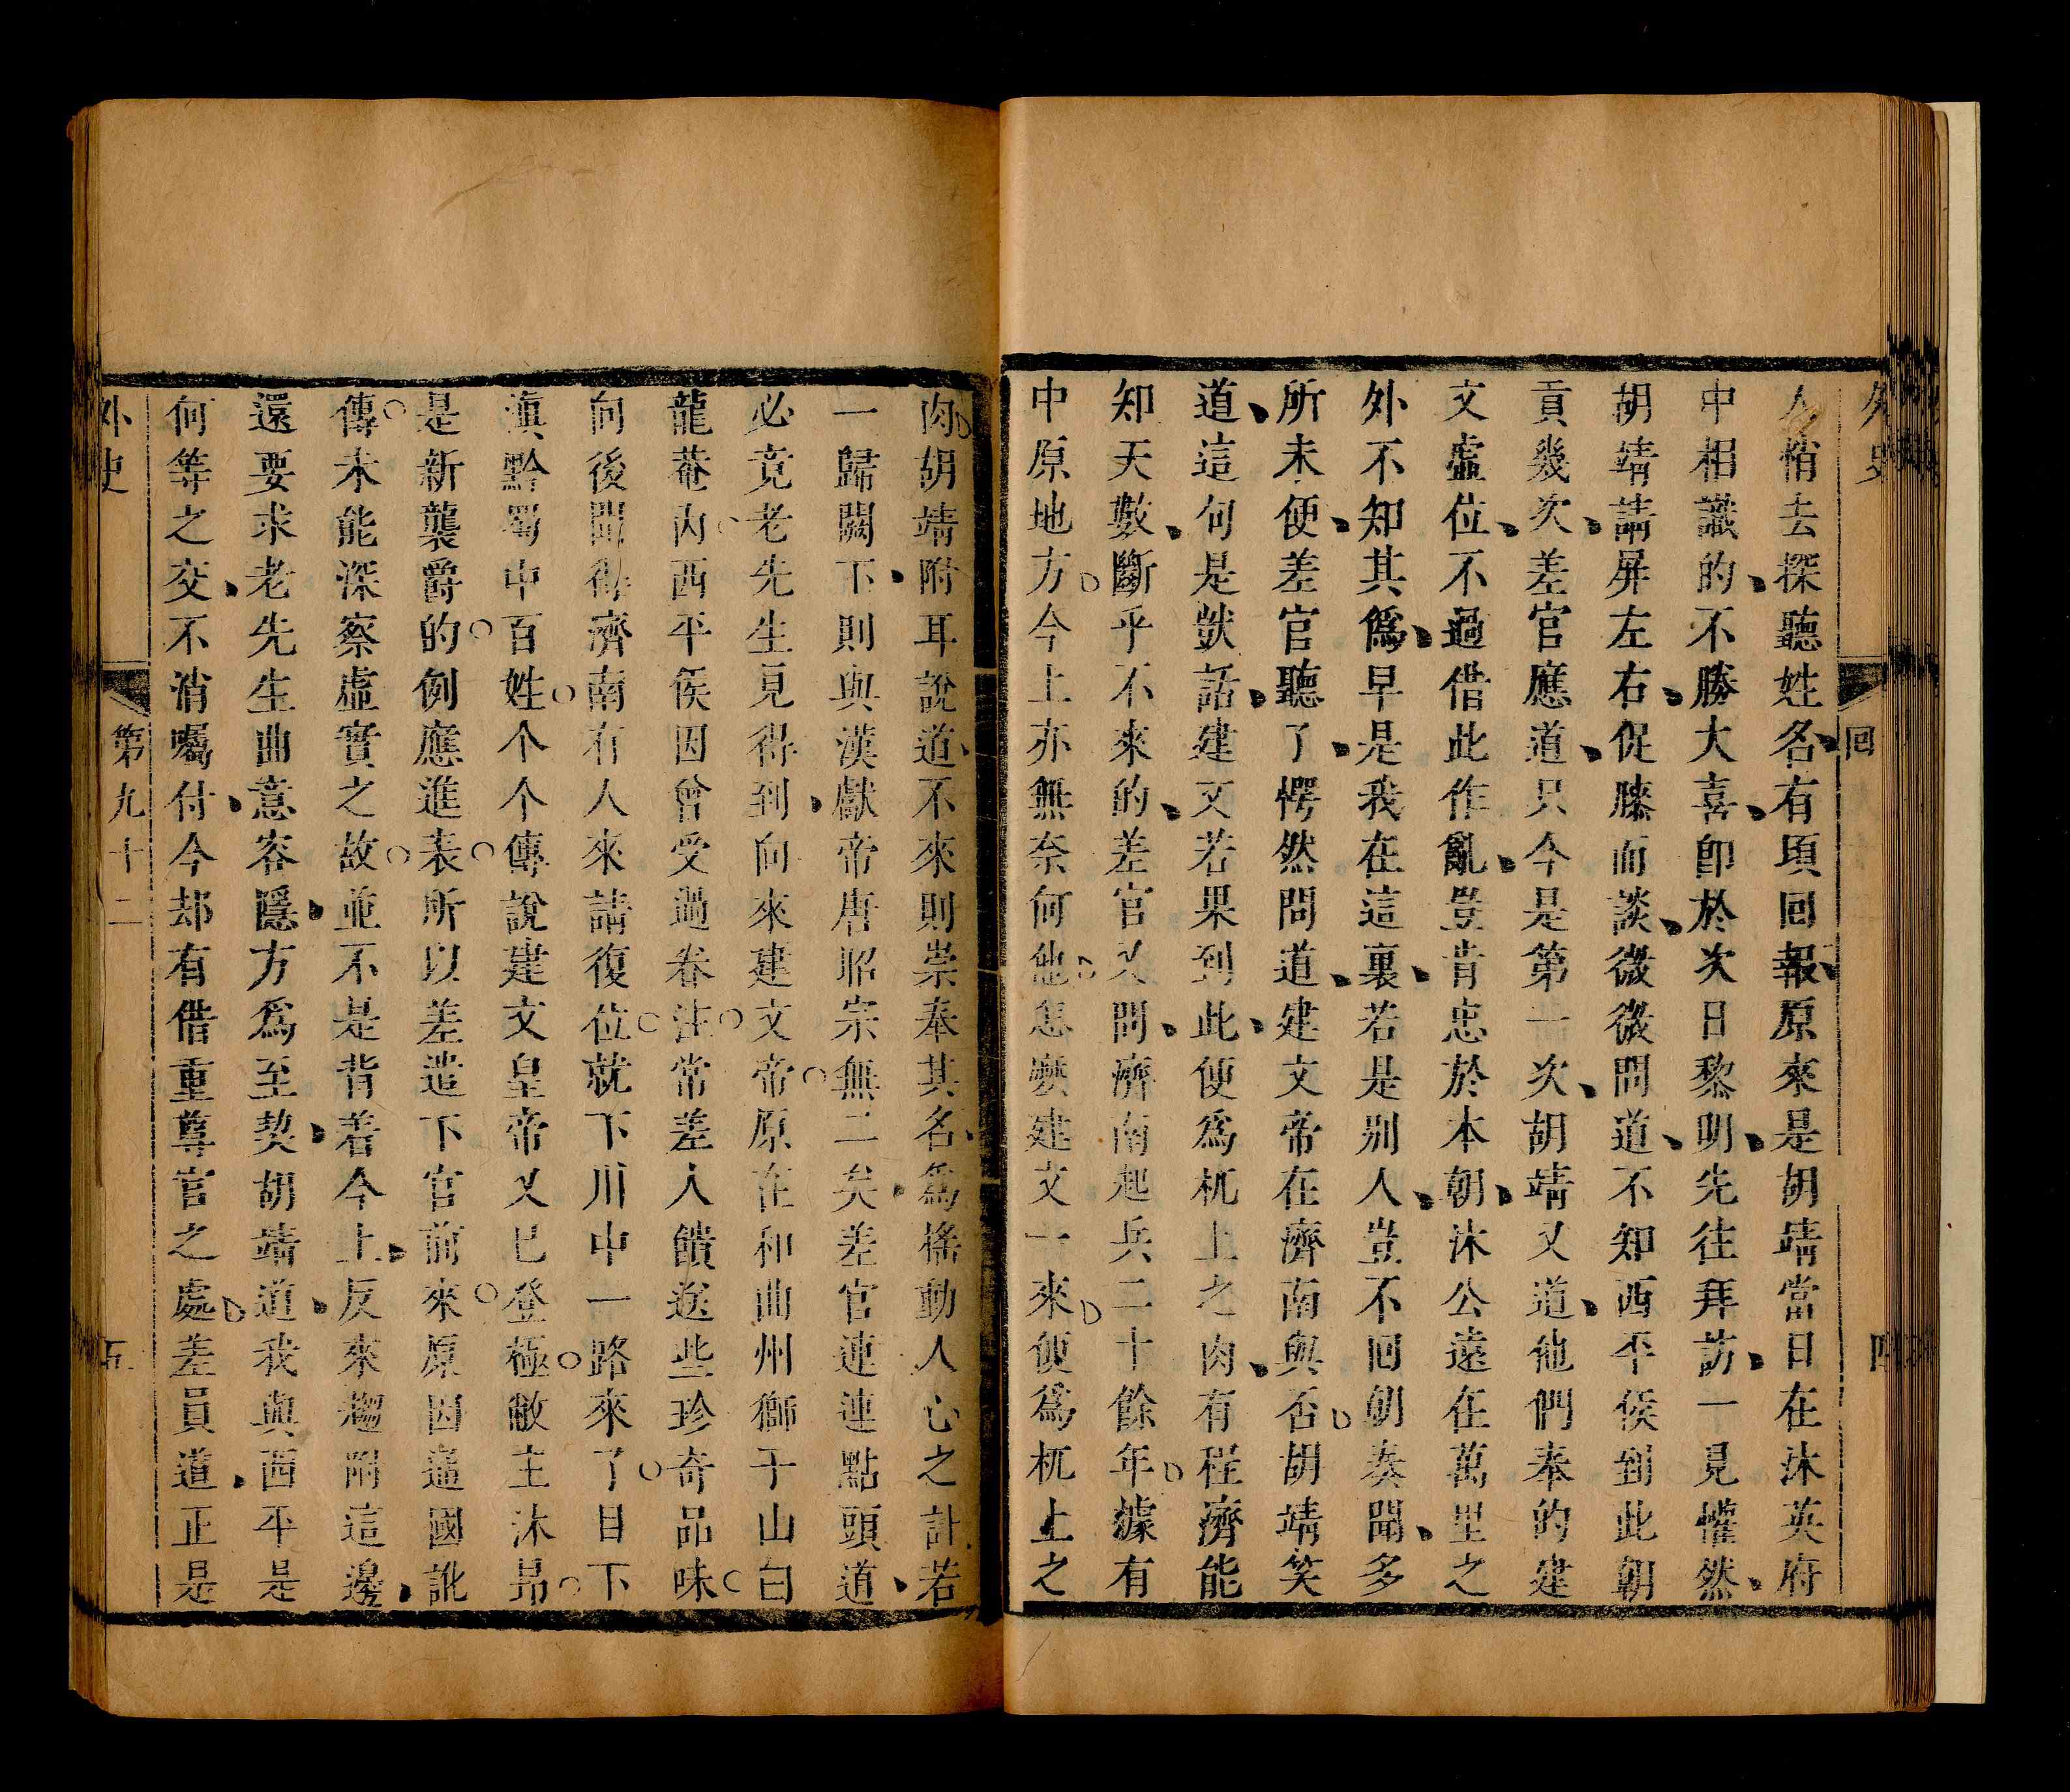 外史
回
四
人悄去探聽姓名有頃回報原來是胡靖當日在沐英府
中相識的不勝大喜卽於次日黎明先往拜訪一見懽然
胡靖請屏左右促膝而談微微問道不知西平侯到此朝
貢幾次差官應道只今是第一次胡靖又道他們奉的建
文虛位不過借此作亂豈肯忠於本朝沐公遠在萬里之
外不知其僞早是我在這裏若是别人豈不囘朝奏聞多
所未便差官聽了愕然問道建文帝在濟南與否胡靖笑
道這何是獃話建文若果到此便爲杌上之肉有程濟能
知天數斷乎不來的差官又問濟南起兵二十餘年據有
中原地方今上亦無奈何他怎麽建文一來便爲杌上之
肉胡靖附耳說道不來則崇奉其名爲搖動人心之計若
一歸闕下則與漢獻帝唐昭宗無二矣差官連連點頭道
必竟老先生見得到向來建文帝原在和曲州獅子山白
龍菴內西平侯因曾受過眷注常差人饋送些珍奇品味
向後聞得濟南有人來請復位就下川中一路來了目下
滇黔蜀中百姓个个傳說建文皇帝又已登極敝主沐昂
是新襲爵的例應進表所以差遣下官前來原因遥國訛
傳未能深察虛實之故並不是背着今上反來趨附這邊
還要求老先生曲意容隱方爲至契胡靖道我與西平是
何等之交不消囑付今却有借重尊官之處差員道正是
外史
第九十二
五